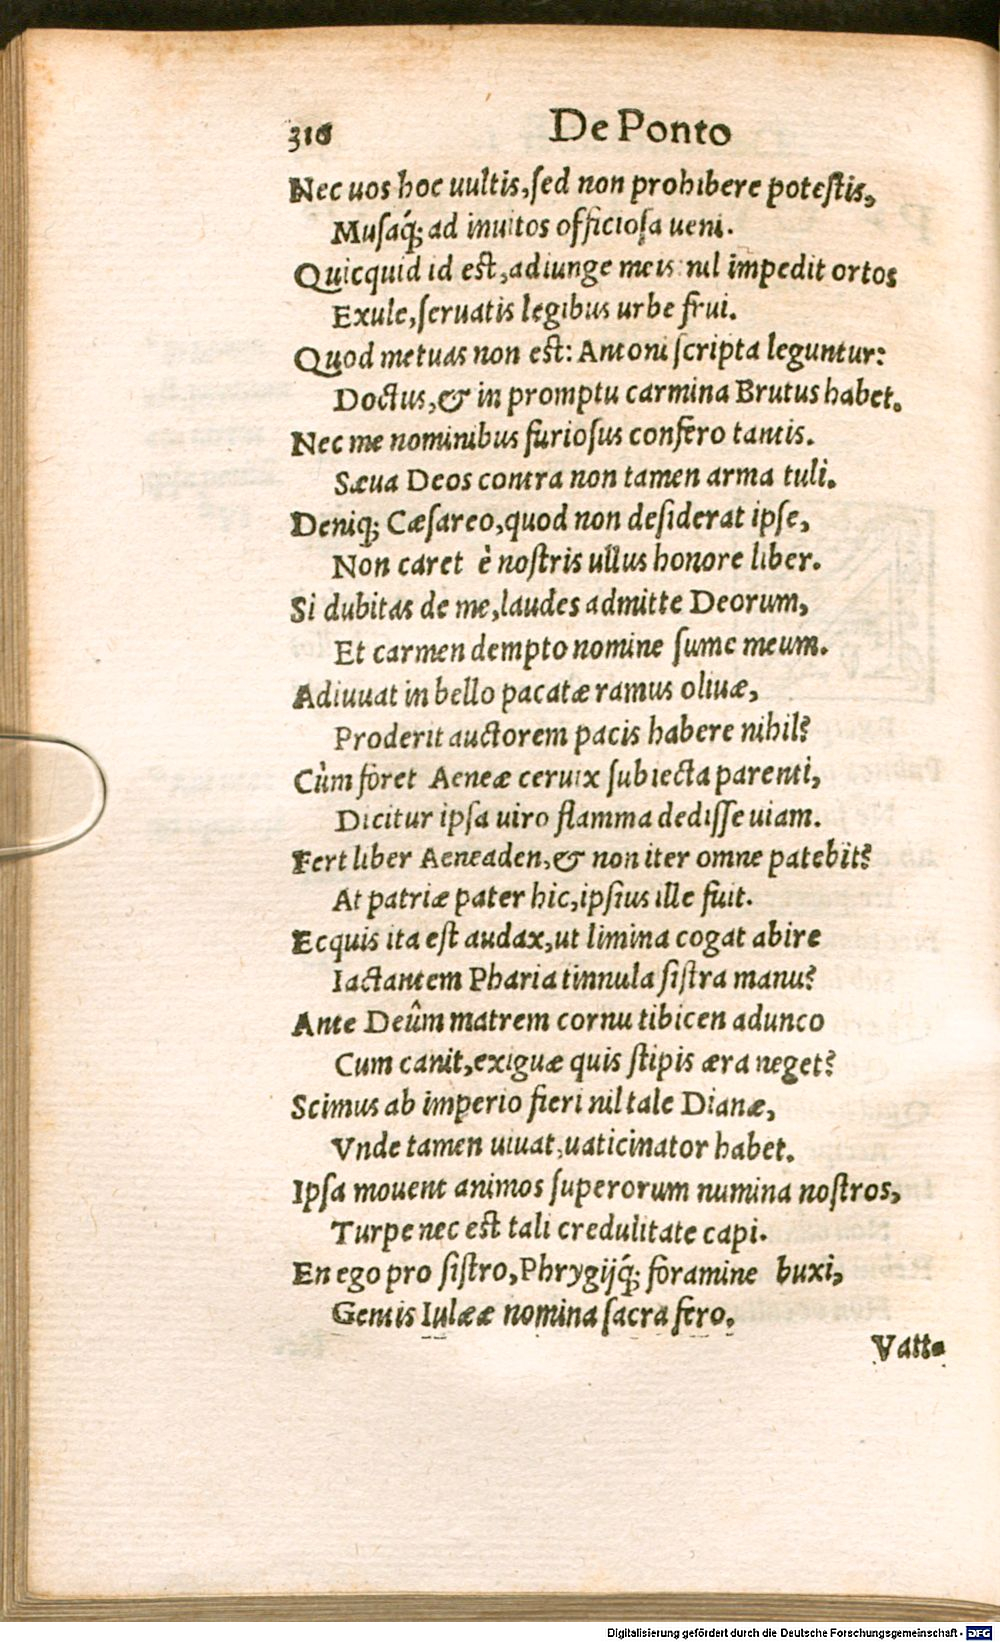 310 De Ponto
Nec uos hoc uultis, ſed non prohibere poteſtis,
Muſaq́; ad inuitos officioſa ueni.
Quicquid id eſt, adiunge meis: nil impedit ortos
Exule, ſeruatis legibus urbe frui.
Quod metuas non eſt: Antoni ſcripta leguntur:
Doctus, & in promptu carmina Brutus habet.
Nec me nominibus furioſus confero tantis.
Sæua Deos contra non tamen arma tuli.
Deniq; Cæſareo, quod non deſiderat ipſe,
Non caret è noſtris ullus honore liber.
Si dubitas de me, laudes admitte Deorum,
Et carmen dempto nomine ſume meum.
Adiuuat in bello pacatæ ramus oliuæ,
Proderit auctorem pacis habere nihil?
Cùm foret Aeneæ ceruix ſubiecta parenti,
Dicitur ipſa uiro flamma dediſſe uiam.
Fert liber Aeneaden, & non iter omne patebit?
At patriæ pater hic, ipſius ille fuit.
Ecquis ita eſt audax, ut limina cogat abire
Iactantem Pharia tinnula ſiſtra manu?
Ante Deûm matrem cornu tibicen adunco
Cum canit, exiguæ quis ſtipis æra neget?
Scimus ab imperio fieri nil tale Dianæ,
Vnde tamen uiuat, uaticinator habet.
Ipſa mouent animos ſuperorum numina noſtros,
Turpe nec eſt tali credulitate capi.
En ego pro ſiſtro, Phrygijq́; foramine buxi,
Gentis Iulææ nomina ſacra fero.
Vati-
Digitalisierung gefördert durch die Deutsche Forschungsgemeinschaft - DFG